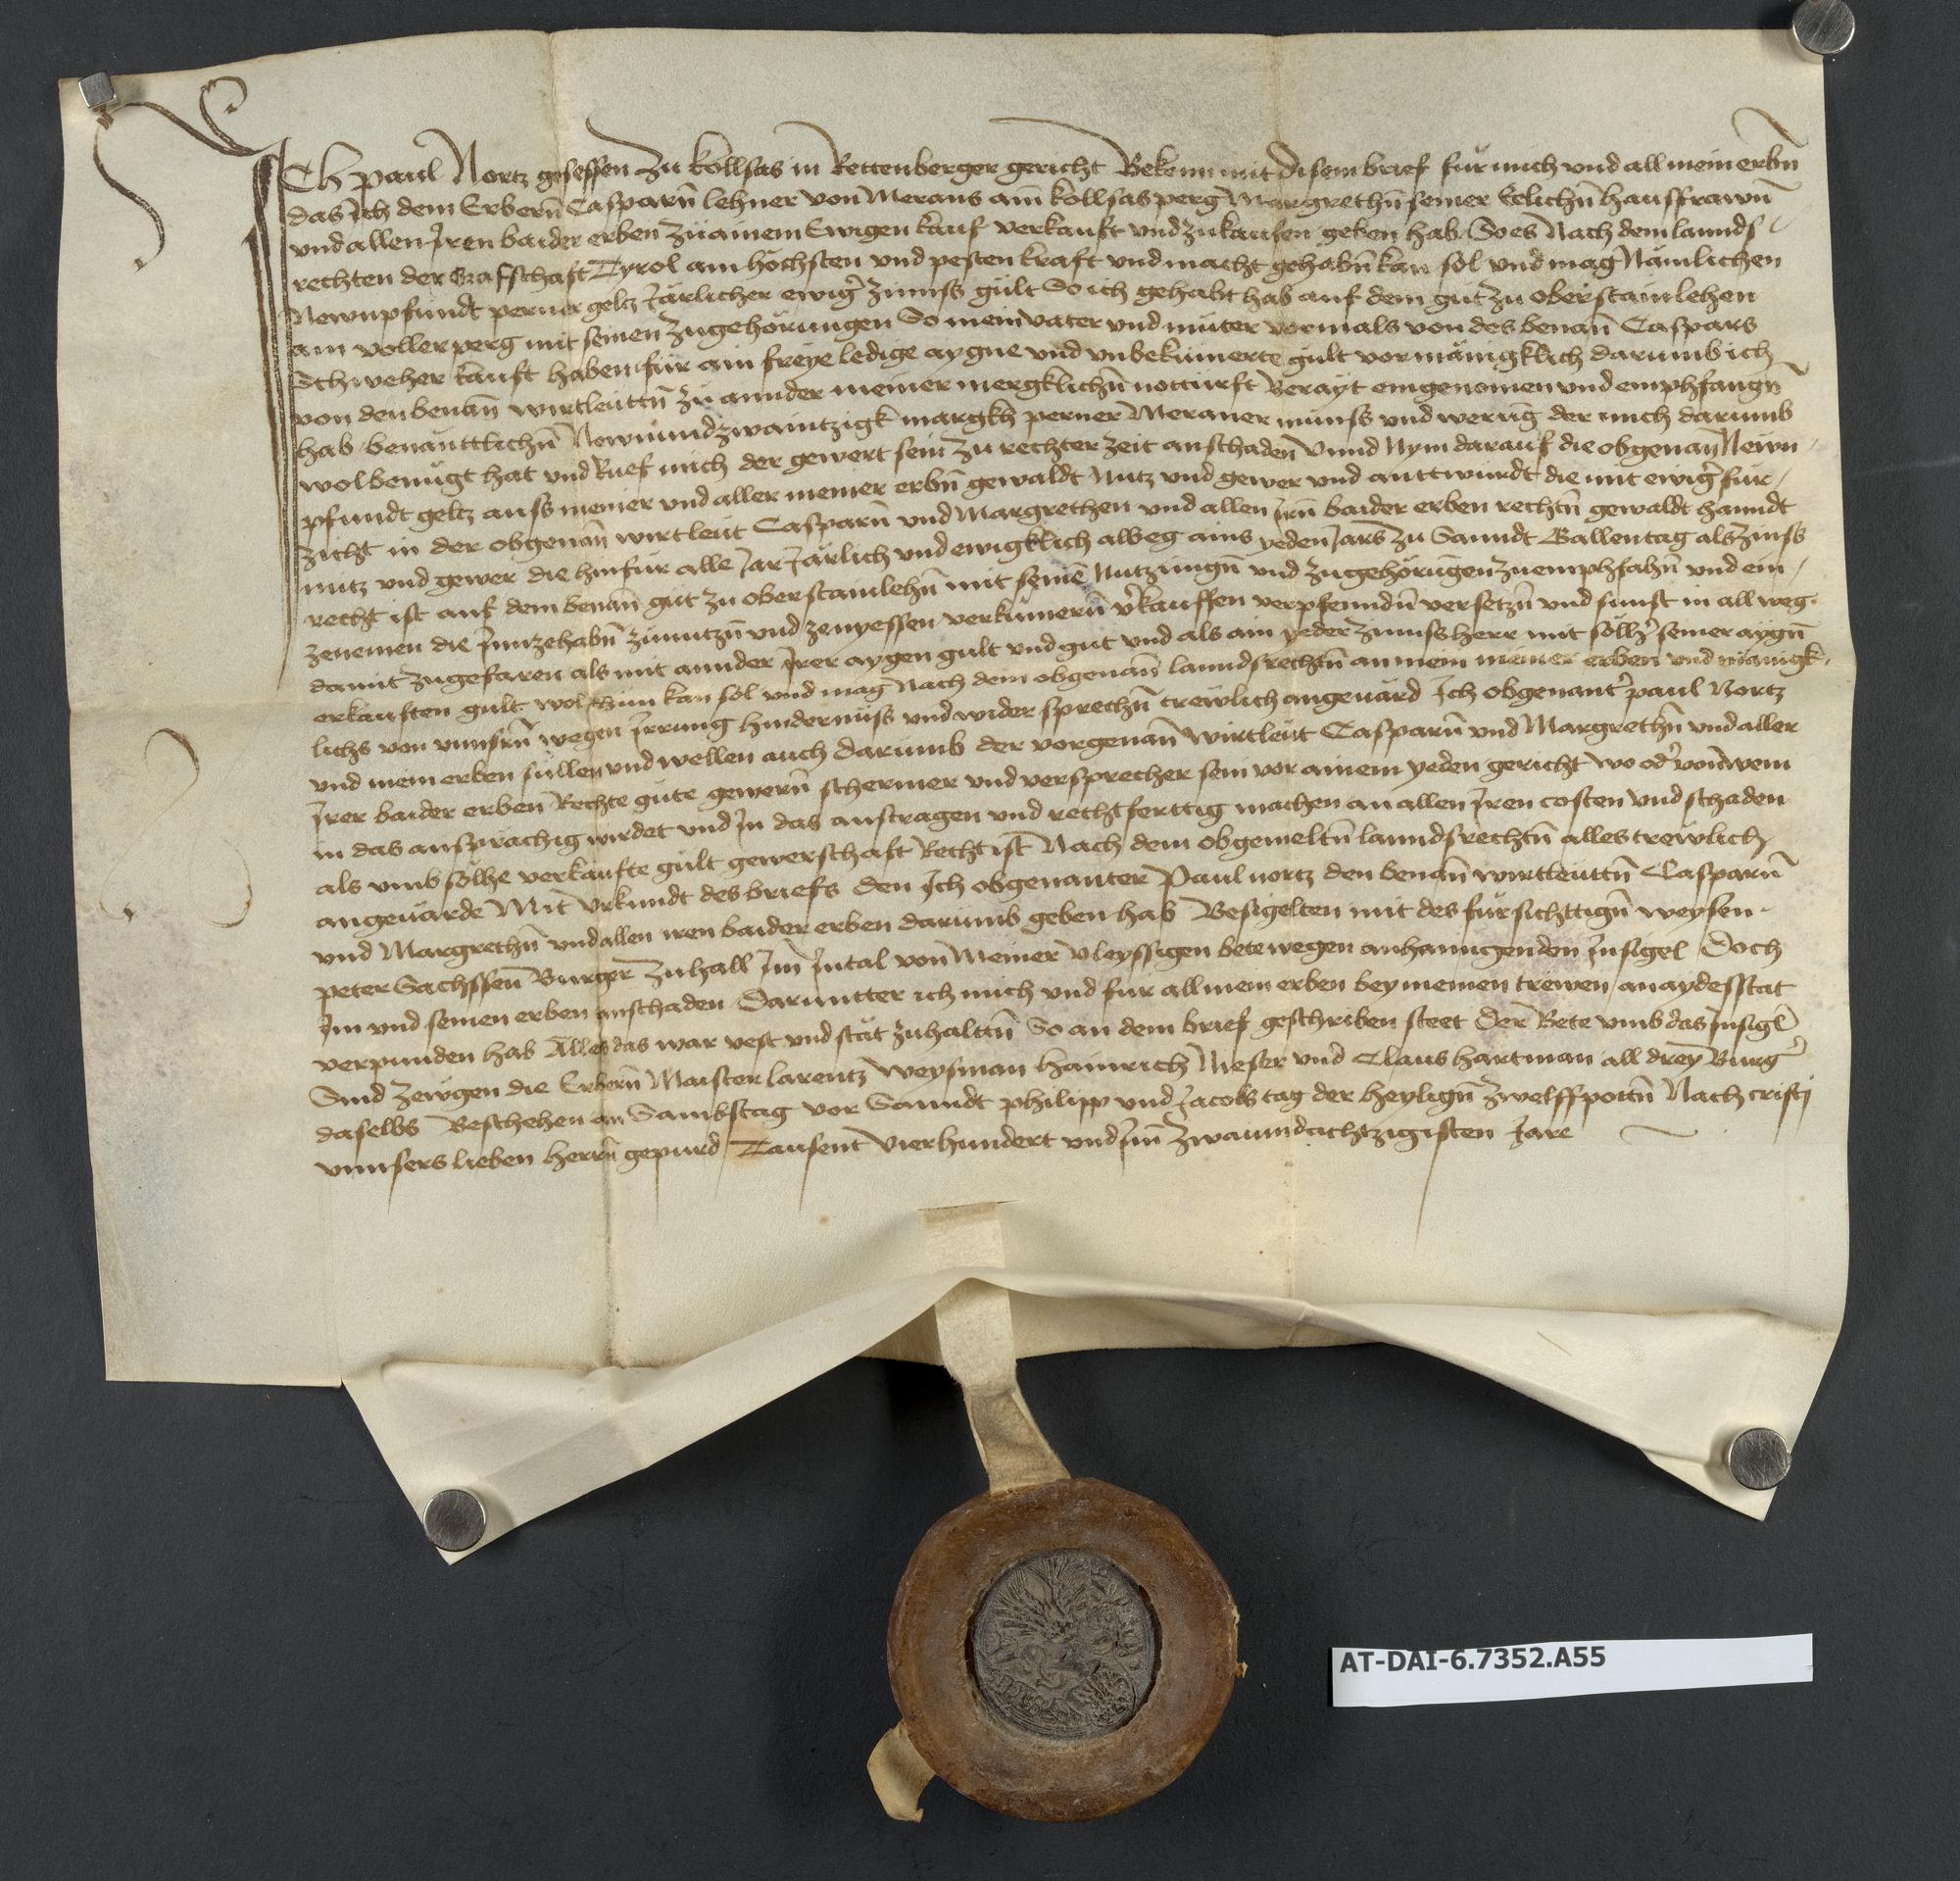 Ich paul Nortz gesessen zu kollsas in Rettenberger gericht Bekenn mit disem brief für mich vnd all mein erbn̄
das ich dem Erbern̄ Casparn̄ lehner von Merans am kollsas perg Margrethn̄ seiner Eelichn̄ hausfrawn̄
vnd allen Jren baider erben zu ainem Ewigen kauf verkauft vnd zukaufen geben hab So es Nach dem lannds
rechten der Grafschaft Tyrol am höchsten vnd pesten kraft vnd macht gehabn̄ kan sol vnd mag Nämlichen
Newn pfundt perner geltz Järlicher ewigr zinnss gült So ich gehabt hab auf dem gut zu oberstainlehen
am vollerperg mit seinen zugehörungen So mein vater vnd muter vormals von des benan̄ Caspars
Schweher kauft haben für ain freye ledige aygne vnd vnbekumerte gült vor mänigklich darumb ich
von den benan̄ wirtleuttn̄ zu annder meiner mergklichn̄ notturft Berayt eingenomen vnd emphfangn̄
hab benäntlichn̄ Newnundzwaintzigk margkh perner Meraner münss vnd werung der mich darumb
wol benügt hat vnd Ruef mich der gewert sein zu rechter zeit an schaden Vnnd Nym darauf die obgenan̄ Newn
pfundt geltz auss meiner vnd aller meiner erbn̄ gewaldt Nutz vnd gewer vnd anttwurdt die mit ewigr für
zicht in der obgenan̄ wirtleut Casparn̄ vnd Margrethen vnd allen irn̄ baider erben rechtn̄ gewaldt hanndt
nutz vnd gewer die hinfür alle Jar Järlich vnd ewigklich alweg ains yeden Jars zu Sanndt Gallentag als zinss
recht ist auf dem benan̄ gut zu oberstainlehn̄ mit seinē Nutzungn̄ vnd zugehörungen zu emphfahn̄ vnd ein
zenemen die Jnnzehabn̄ zunutzn̄ vnd zenyessen verkumern̄ vrkauffen verpfenndn̄ versetzn̄ vnd sunst in all weg
damit zugefaren als mit annder Jrer aygen gult vnd gut vnd als ain yeder zinnssherr mit söllhr seiner aygn̄
erkauften gult wol thun kan sol vnd mag Nach dem obgenan̄ lanndsrechtn̄ an mein meiner erben vnd mänigk
lichs von vnnsrn̄ wegen Jrrung hindernüss vnd wider sprechn̄ trewlich angeuärd Jch obgenantr paul Nortz
vnd mein erben süllen vnd wellen auch darumb der vorgenan̄ wirtleüt Casparn̄ vnd Margrethn̄ vnd aller
Jrer baider erben Rechte gute gewern̄ schermer vnd versprecher sein vor ainem yeden gericht wo odr von wem
in das ansprächig wirdet vnd Jn das austragen vnd rechtferttig machen an allen Jren costen vnd schaden
als vmb sölhe verkaufte gült gewerschaft Recht ist Nach dem obgemeltn̄ lanndsrechtn̄ alles trewlich
angeuärde Mit Vrkundt des briefs den Jch obgenanter Paul nortz den benan̄ wirtleuttn̄ Casparn̄
vnd Margrethn̄ vnd allen iren baider erben darumb geben hab Besigelten mit des fürsichttign̄ weysen
peter Sachssen Burger zu hall Jm Jntal von Meiner vleyssigen bete wegen anhanngenden Jnsigel Doch
Jm vnd seinen erben an schaden Daruntter ich mich vnd für all mein erben bey meinen trewen an aydes stat
verpunden hab Alles das war vest vnd stät zuhalttn̄ So an dem brief geschriben steet Der Bete vmb das Jnsigl
Sind zewgen die Erbern̄ Maister larentz weysman hainrich Nieser vnd Claus hartman all drey Burgr
daselbs Beschehen an Sambstag vor Sanndt philipp vnd Jacobs tag der heylign̄ zwelffpottn̄ Nach cristj
vnnsers lieben herrn̄ gepurd Tausent Vierhundert vnd Jm zwaiundachtzigisten Jare
AT-DAI-6.7352.A55